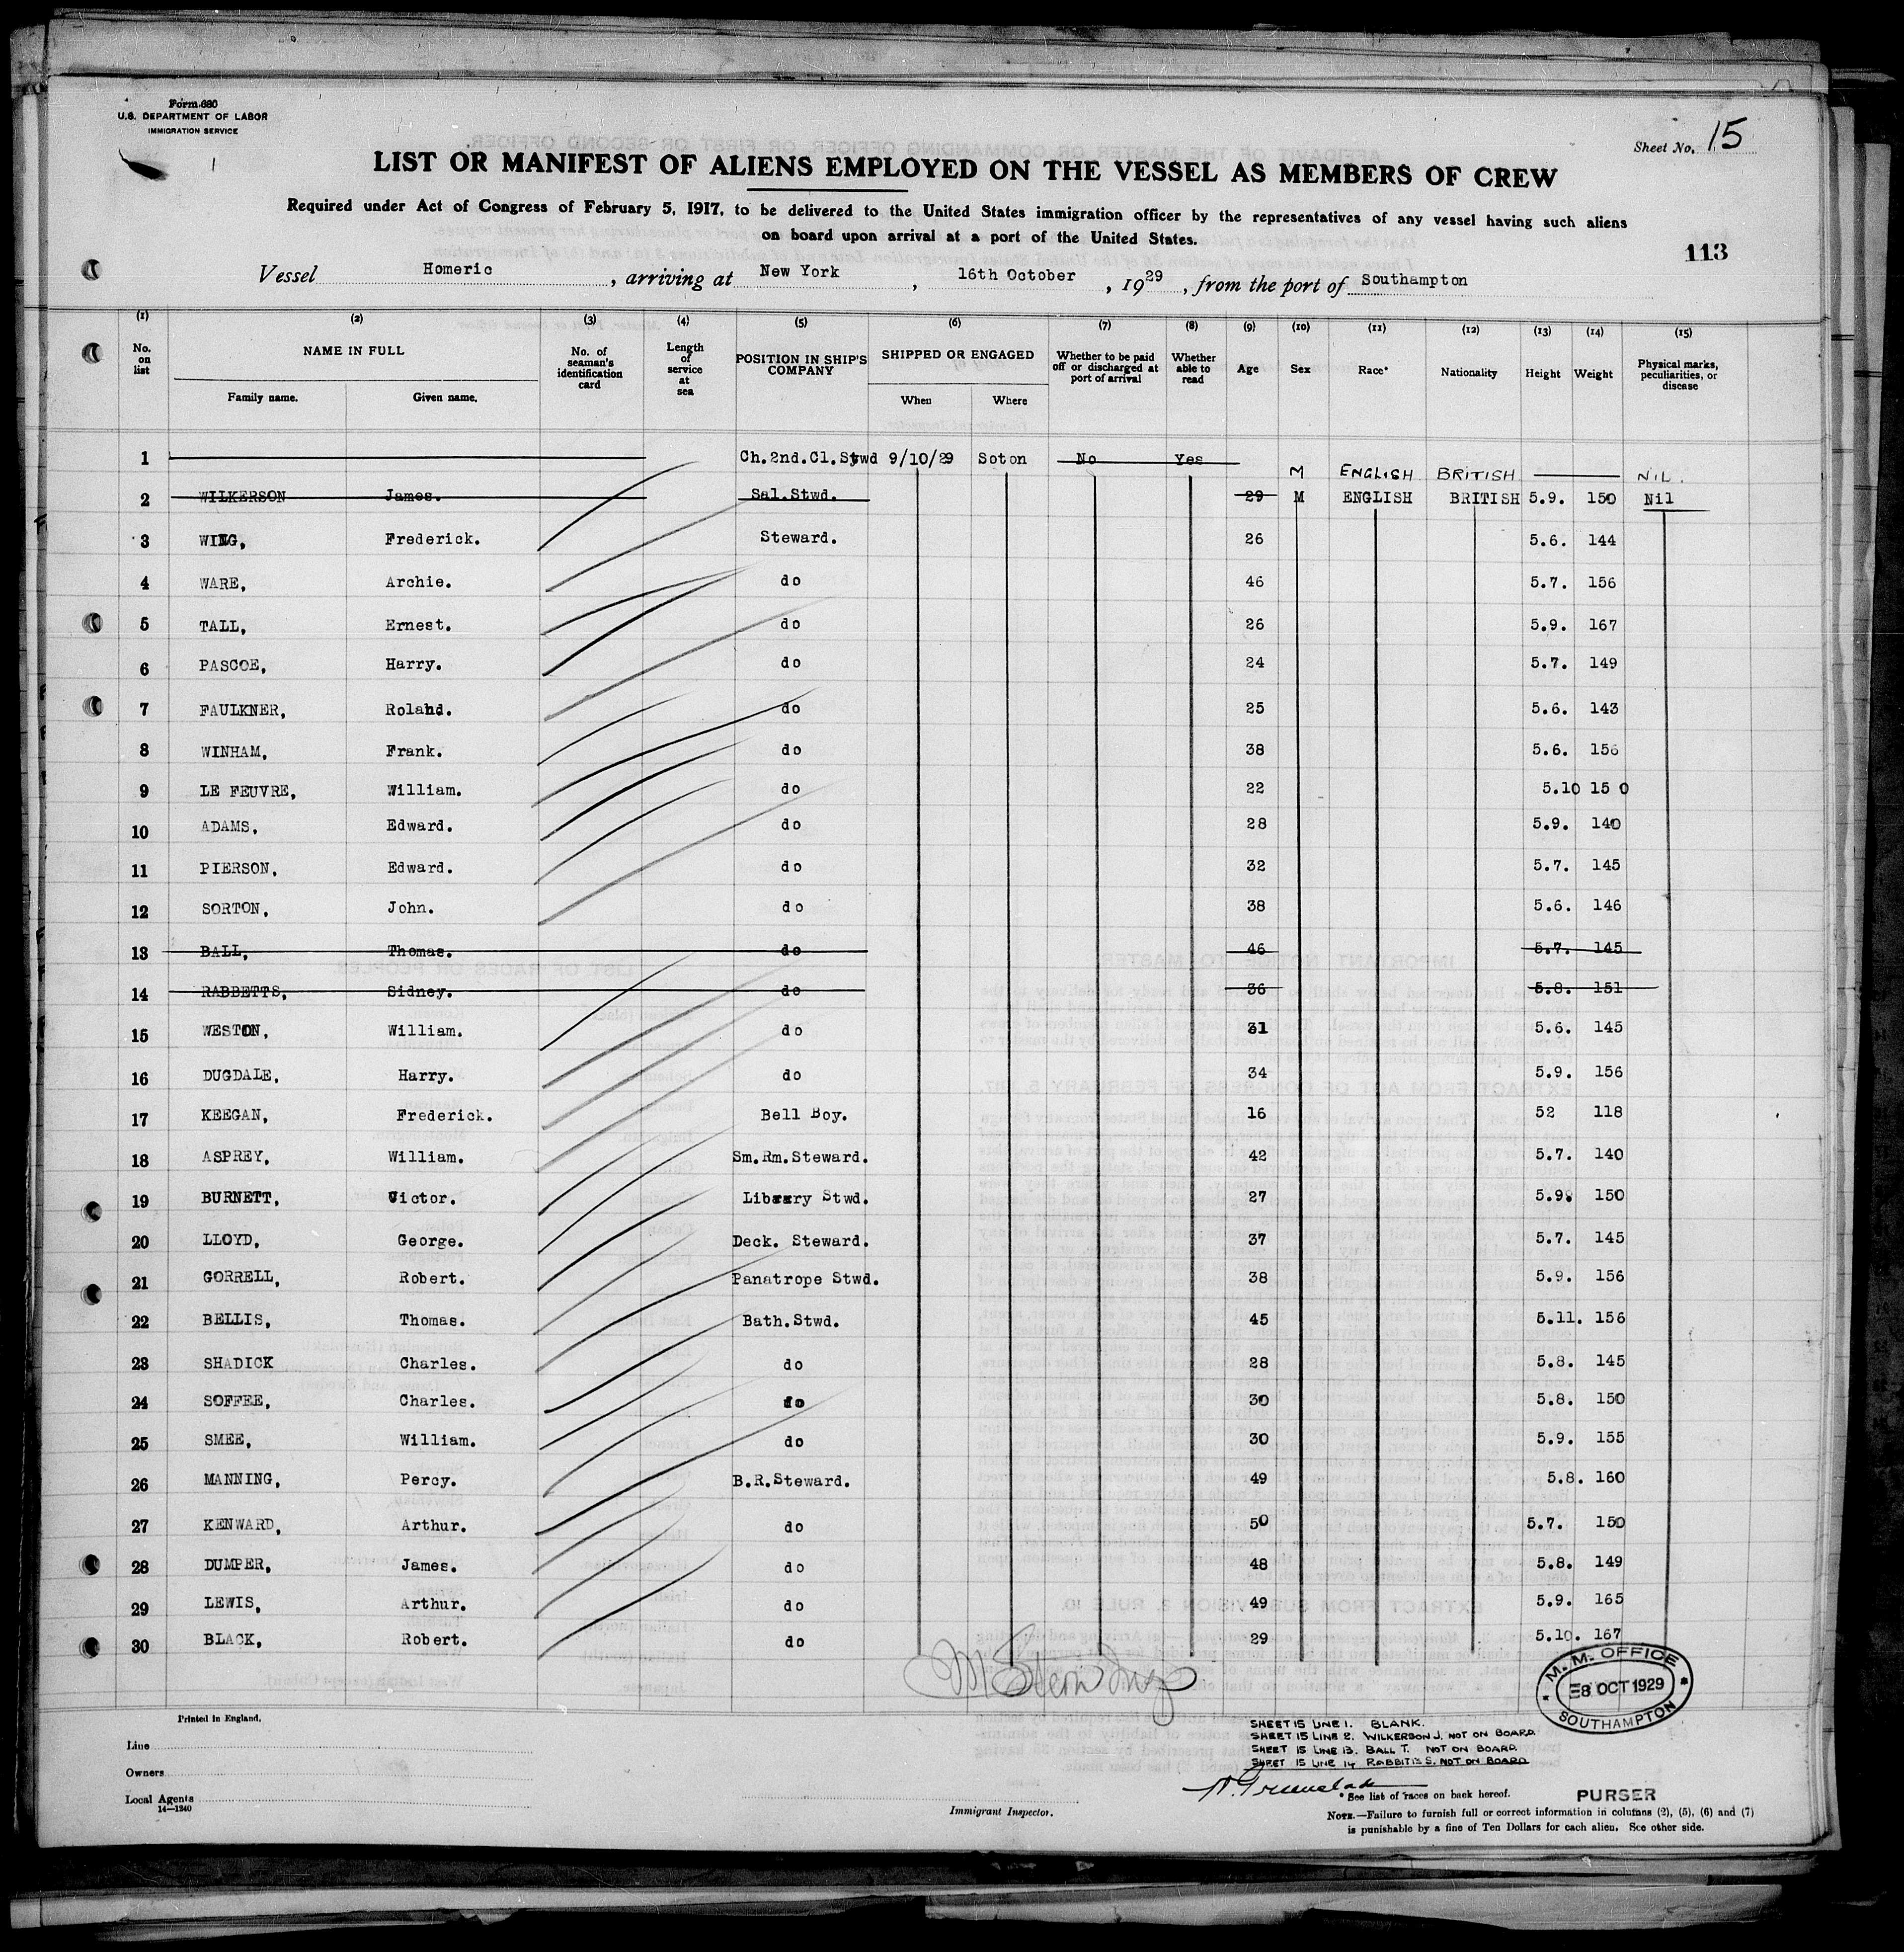 Form 680
U.S. DEPARTMENT OF LABOR
IMMIGRATION SERVICE
Sheet No. 15
LIST OR MANIFEST OF ALIENS EMPLOYED ON THE VESSEL AS MEMBERS OF CREW
Required under Act of Congress of February 5, 1917, to be delivered to the United States immigration officer by the representatives of any vessel having such aliens
on board upon arrival at a port of the United States.
113
Vessel Homeric, arriving at New York, 16th October, 1929, from the port of Southampton
(1) (2) (3) (4) (5) (6) (7) (8) (9) (10) (11) (12) (13) (14) (15)
No. on list NAME IN FULL No. of seaman's identification card Length of service at sea POSITION IN SHIP'S COMPANY SHIPPED OR ENGAGED Whether to be paid off or discharged at port of arrival Whether able to read Age Sex Race* Nationality Height Weight Physical marks, peculiarities, or disease
Family name. Given name. When Where
1 Ch.2nd.Cl.Stwd 9/10/29 Soton No Yes M ENGLISH BRITISH NIL.
2 WILKERSON James. Sal.Stwd. 29 M ENGLISH BRITISH 5.9. 150 Nil
3 WING, Frederick. Steward. 26 5.6. 144
4 WARE, Archie. do 46 5.7. 156
5 TALL, Ernest. do 26 5.9. 167
6 PASCOE, Harry. do 24 5.7. 149
7 FAULKNER, Roland. do 25 5.6. 143
8 WINHAM, Frank. do 38 5.6. 156
9 LE FEUVRE, William. do 22 5.10 150
10 ADAMS, Edward. do 28 5.9. 140
11 PIERSON, Edward. do 32 5.7. 145
12 SORTON, John. do 38 5.6. 146
13 BALL, Thomas. do 46 5.7. 145
14 RABBETTS, Sidney. do 36 5.8. 151
15 WESTON, William. do 31 5.6. 145
16 DUGDALE, Harry. do 34 5.9. 156
17 KEEGAN, Frederick. Bell Boy. 16 52 118
18 ASPREY, William. Sm.Rm.Steward. 42 5.7. 140
19 BURNETT, Victor. Library Stwd. 27 5.9. 150
20 LLOYD, George. Deck. Steward. 37 5.7. 145
21 GORRELL, Robert. Panatrope Stwd. 38 5.9. 156
22 BELLIS, Thomas. Bath.Stwd. 45 5.11. 156
23 SHADICK Charles. do 28 5.8. 145
24 SOFFEE, Charles. do 30 5.8. 150
25 SMEE, William. do 30 5.9. 155
26 MANNING, Percy. B.R.Steward. 49 5.8. 160
27 KENWARD, Arthur. do 50 5.7. 150
28 DUMPER, James. do 48 5.8. 149
29 LEWIS, Arthur. do 49 5.9. 165
30 BLACK, Robert. do 29 5.10. 167
M.M. OFFICE
8 OCT 1929
SOUTHAMPTON
Printed in England.
Line
Owners
Local Agents
14—1240
SHEET 15 LINE 1. BLANK.
SHEET 15 LINE 2. WILKERSON J. NOT ON BOARD.
SHEET 15 LINE 13. BALL T. NOT ON BOARD.
SHEET 15 LINE 14 RABBITTS S. NOT ON BOARD
Immigrant Inspector.
* See list of races on back hereof.
PURSER
NOTE.—Failure to furnish full or correct information in columns (2), (5), (6) and (7)
is punishable by a fine of Ten Dollars for each alien. See other side.